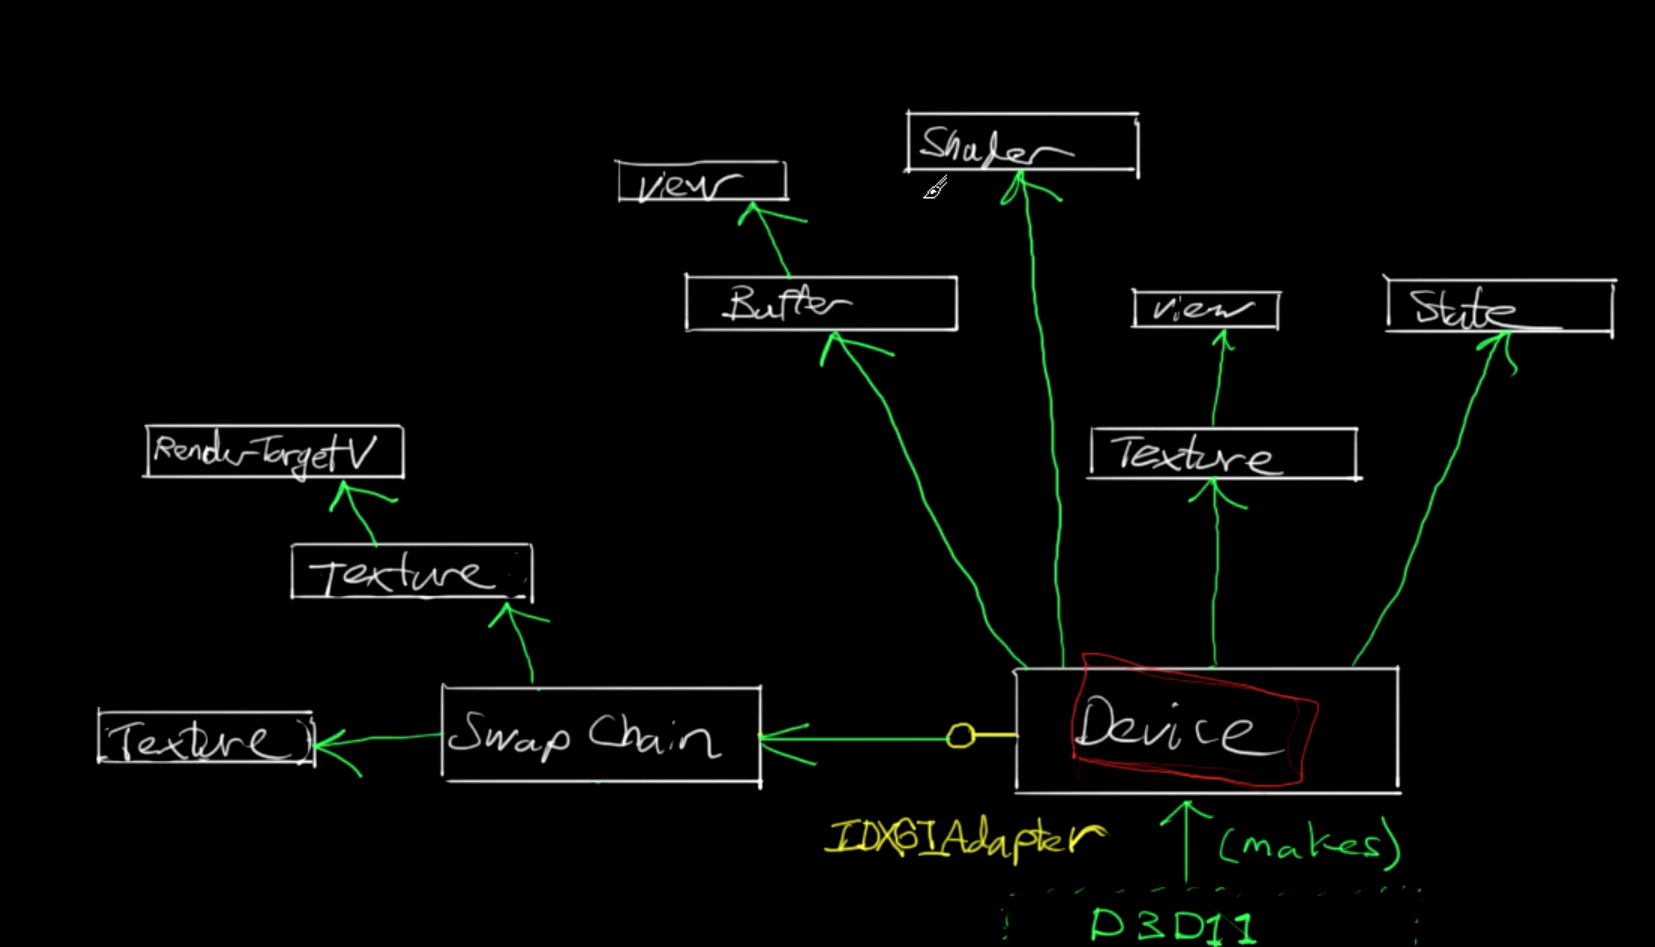 Shader
View
Buffer
View
State
RenderTargetV
Texture
Texture
Texture
Swap Chain
Device
IDXGIAdapter
(makes)
D3D11